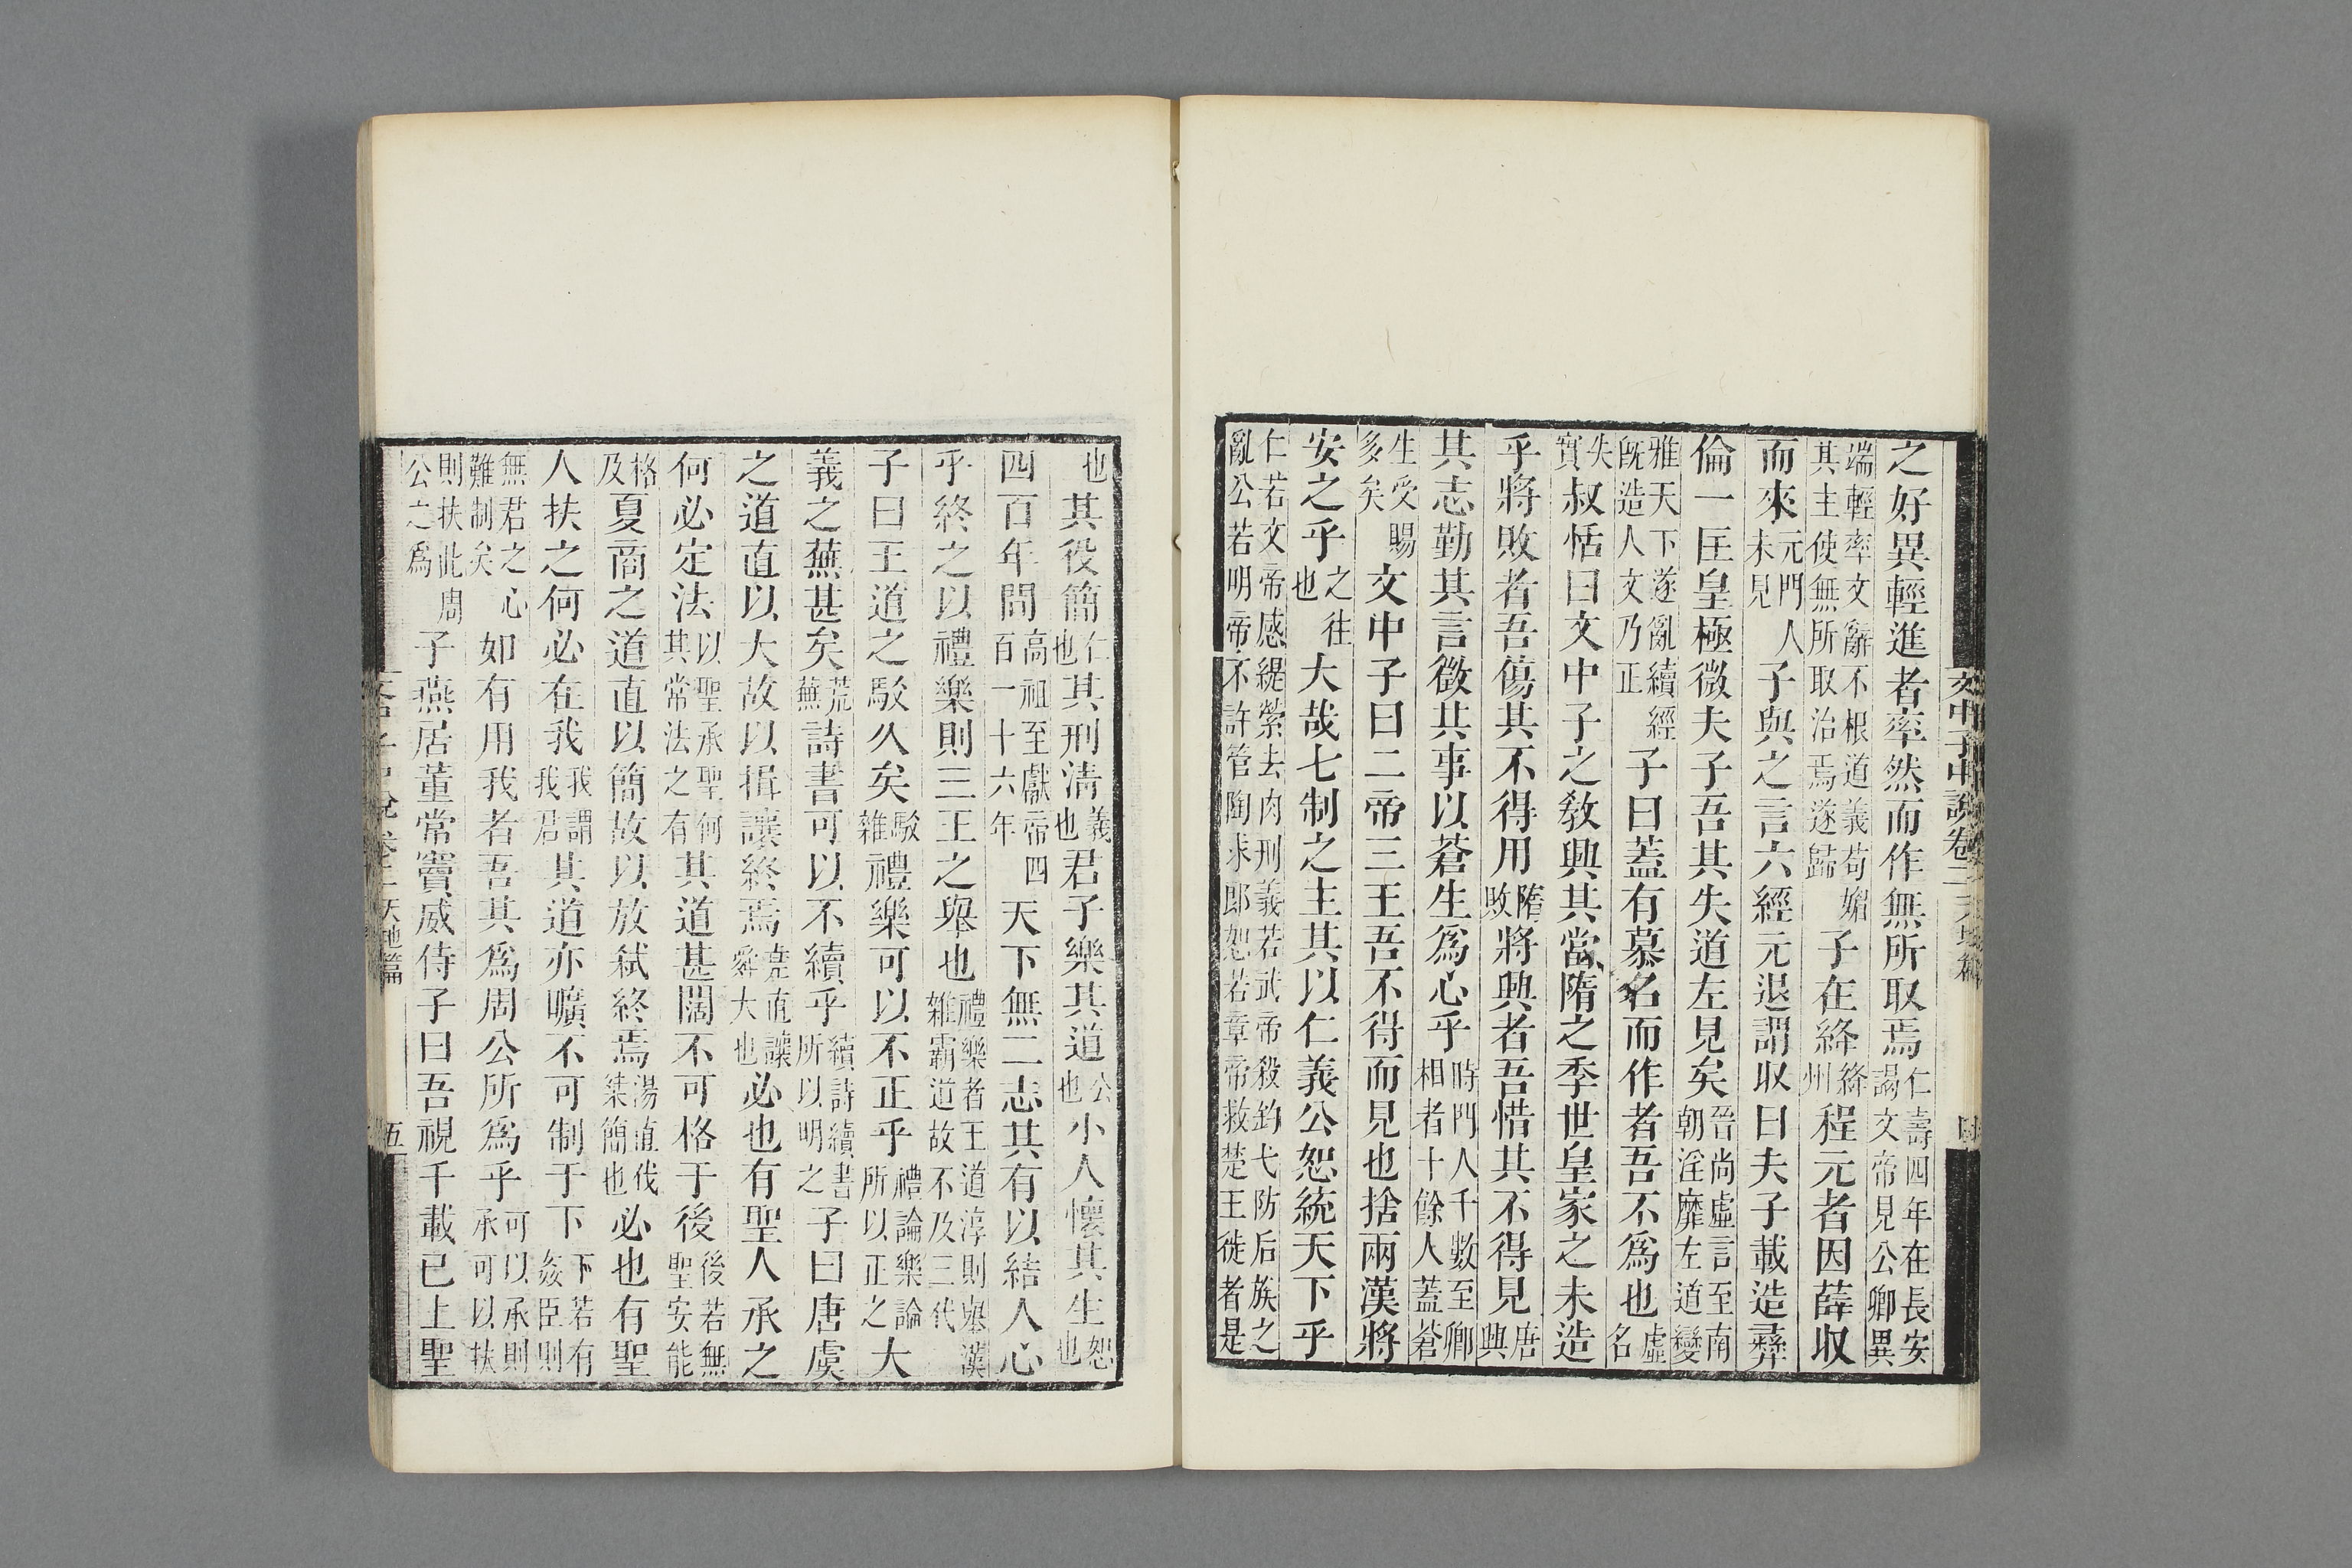 之好異輕進者率然而作無所取焉仁壽四年在長安謁文帝見公卿異
端輕率文辭不根道義苟媚其主使無所取治焉遂歸子在絳絳州程元者因薛収
而來元門人未見子與之言六經元退謂収曰夫子載造彝
倫一匡皇極微夫子吾其失道左見矣晉尚虛言至南朝淫靡左道變
雅天下遂亂續經旣造人文乃正子曰蓋有慕名而作者吾不為也虛名
失實叔恬曰文中子之敎興其當隋之季世皇家之未造
乎將敗者吾傷其不得用隋敗將興者吾惜其不得見唐興
其志勤其言徵其事以蒼生為心乎時門人千數至卿相者十餘人蓋蒼
生受賜多矣文中子曰二帝三王吾不得而見也捨兩漢將
安之乎之往也大哉七制之主其以仁義公恕統天下乎
仁若文帝感緹縈去肉刑義若武帝殺鈎弋防后族之亂公若明帝不許管陶求郎恕若章帝赦楚王徙者是
文中子中說卷二天地篇
四
也其役簡仁也其刑淸義也君子樂其道公也小人懷其生恕也
四百年間高祖至獻帝四百一十六年天下無二志其有以結人心
乎終之以禮樂則三王之舉也禮樂者王道淳則舉漢雜霸道故不及三代
子曰王道之駁久矣駁雜禮樂可以不正乎禮論樂論所以正之大
義之蕪甚矣荒蕪詩書可以不續乎續詩續書所以明之子曰唐虞
之道直以大故以揖讓終焉堯直讓舜大也必也有聖人承之
何必定法以聖承聖何其常法之有其道甚闊不可格于後後若無聖安能
格及夏商之道直以簡故以放弑終焉湯直伐桀簡也必也有聖
人扶之何必在我我謂我君其道亦曠不可制于下下若有姦臣則
無君之心難制矣如有用我者吾其為周公所為乎可以承則承可以扶
則扶此周公之為子燕居董常竇威侍子曰吾視千載已上聖
文中子中說卷二天地篇
五